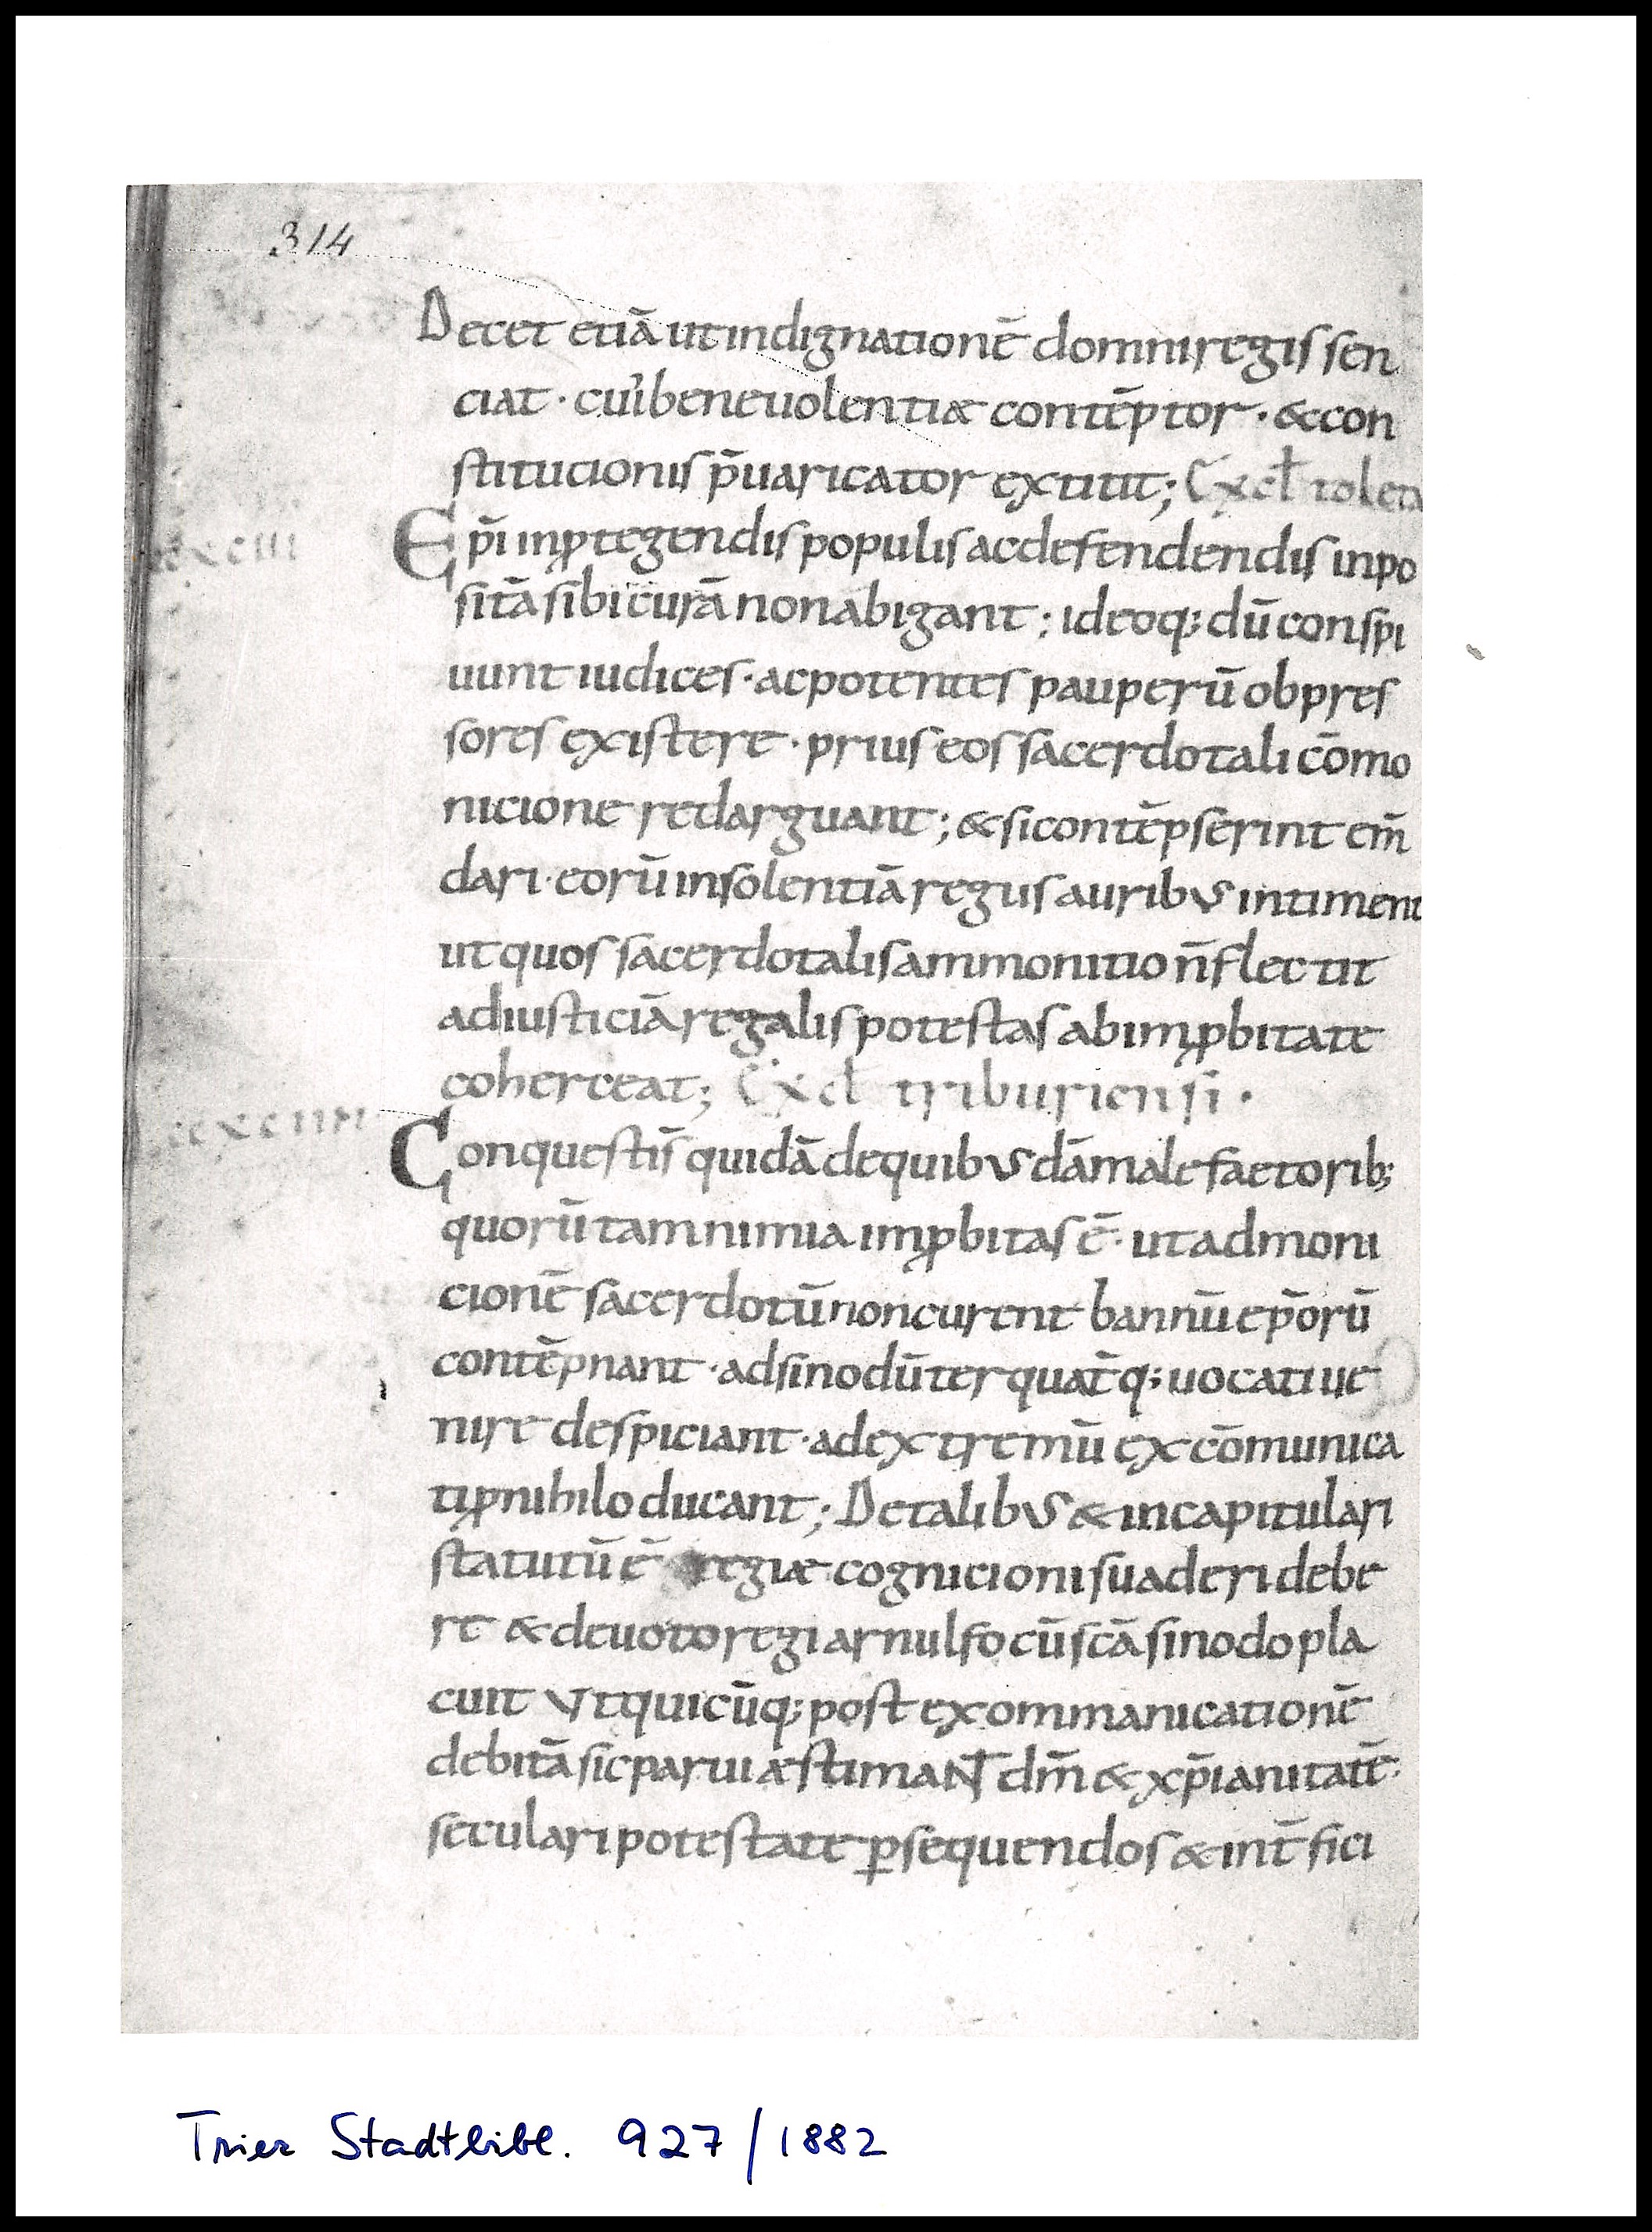 314
Decet etiā ut indignationē domni regis sen
ciat · cui' benevolentiæ contēptor · & con
stitucionis p̄uaricator extitit; Ex cł tolet
Ep̄i in ꝓtegendis populis ac defendendis inpo
sitā sibi curā non abigant; ideoq; dū conspi
uunt iudices · ac potentes pauperū obpres
sores existere · prius eos sacerdotali cōmo
nicione redarguant; & si contēpserint em̄
dari · eorū insolentiā regiis auribus intiment
ut quos sacerdotalis ammonitio n̄ flectit
ad iusticiā regalis potestas ab imꝓbitate
coherceat; Ex cł triburiensi ·
ccxciiii
Conquestīs quidā de quibus dā malefactorib;
quorū tam nimia imꝓbitas ē · ut admoni
cionē sacerdotū non curent bannū ep̄orū
contēpnant · ad sinodū ter quat̄q; uocati ue
nire despiciant · ad extremū excōmunica
ti ꝓ nihilo ducant; De talibus & in capitulari
statutū ē regiæ cognicioni suaderi debe
re & deuoto regi arnulfo cū sc̄ā sinodo pla
cuit ut quicūq; post excommanicationē
debitā sic parui æstimaNT dm̄ & xp̄ianitatē ·
seculari potestate ꝑsequendos & int̄fici
Trier Stadtbibl. 927/1882